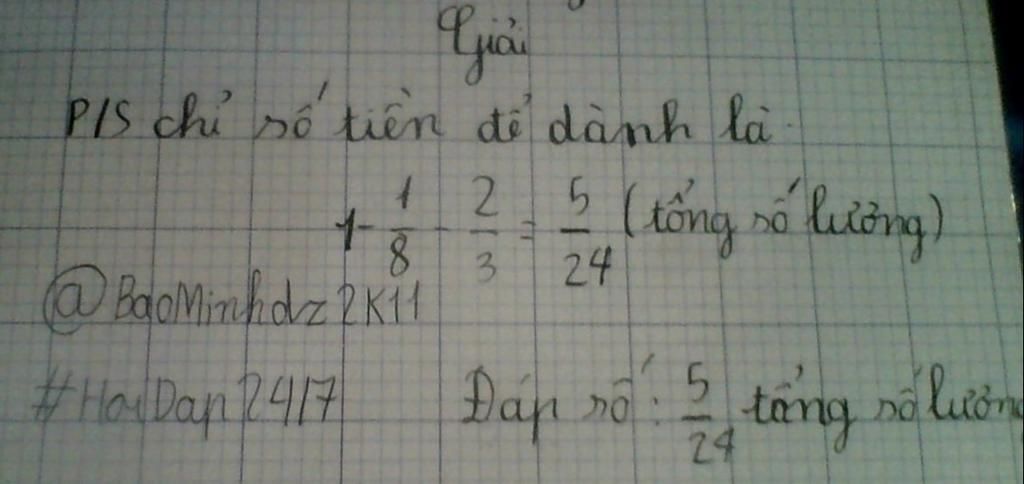 Giải
P/S chỉ số tiền để dành là
1 - 1/8 - 2/3 = 5/24 (tổng số lương)
@BaoMinhdz2K11
#HoiDap2417 Đáp số: 5/24 tổng số lương